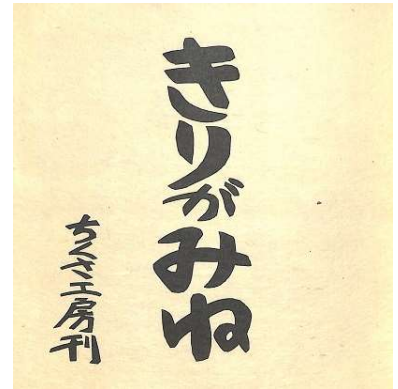 きりがみね
ちくさ工房刊